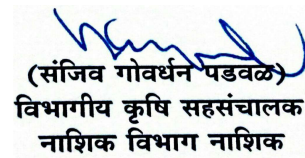 (संजिव गोवर्धन पडवळ)
विभागीय कृषि सहसंचालक
नाशिक विभाग नाशिक